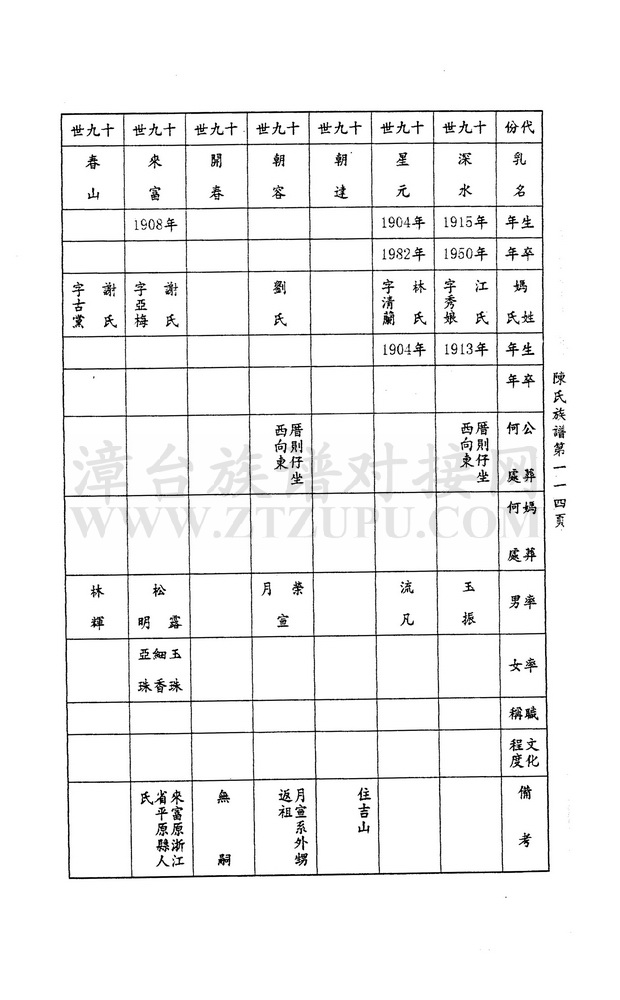 陳氏族譜第一一四頁
代份 乳名 生年 卒年 媽姓氏 生年 卒年 公葬何處 媽葬何處 率男 率女 職稱 文化程度 備考
十九世 深水 1915年 1950年 江氏字秀娘 1913年 厝則仔坐西向東 玉振
十九世 星元 1904年 1982年 林氏字清蘭 1904年 流凡
十九世 朝達 住吉山
十九世 朝容 劉氏 厝則仔坐西向東 榮宣 月 月宣系外甥返祖
十九世 開春 無嗣
十九世 來富 1908年 謝氏字亞梅 露 松明 玉珠 細香 亞珠 來富原浙江省平原縣人氏
十九世 春山 謝氏字古黨 林輝
漳台族谱对接网
WWW.ZTZUPU.COM